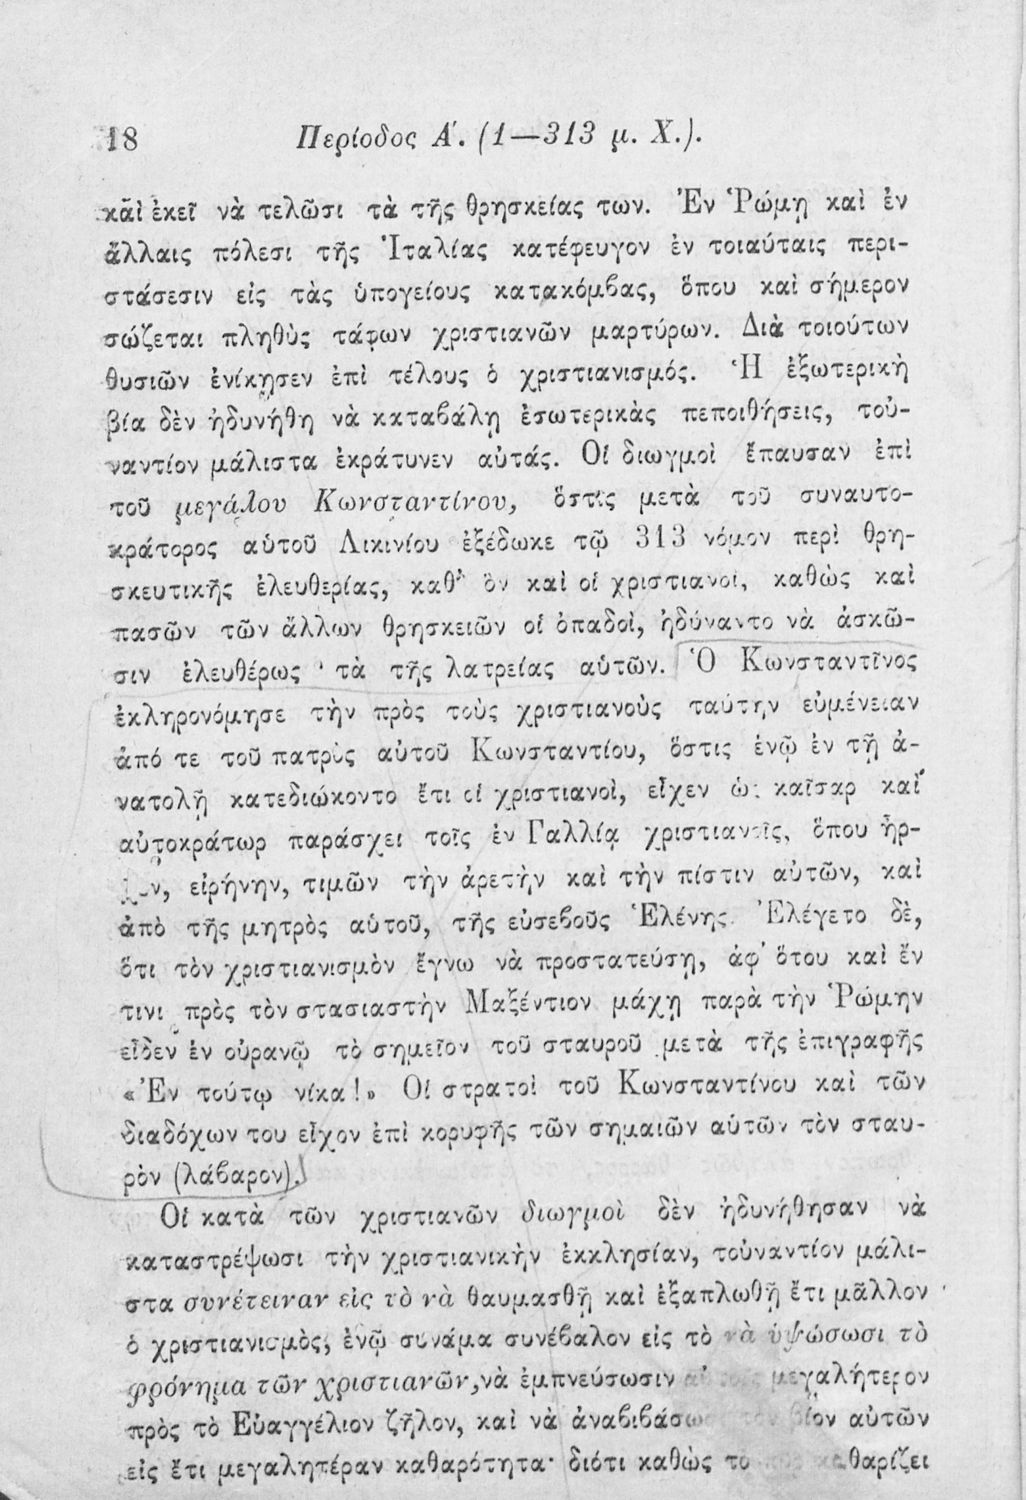 18 Περίοδος Α΄. (1—313 μ. Χ.).
καὶ ἐκεῖ νὰ τελῶσι τὰ τῆς θρησκείας των. Ἐν Ῥώμῃ καὶ ἐν
ἄλλαις πόλεσι τῆς Ἰταλίας κατέφευγον ἐν τοιαύταις περι-
στάσεσιν εἰς τὰς ὑπογείους κατακόμβας, ὅπου καὶ σήμερον
σώζεται πληθὺς τάφων χριστιανῶν μαρτύρων. Διὰ τοιούτων
θυσιῶν ἐνίκησεν ἐπὶ τέλους ὁ χριστιανισμός. Ἡ ἐξωτερικὴ
βία δὲν ἠδυνήθη νὰ καταβάλῃ ἐσωτερικὰς πεποιθήσεις, τοὐ-
ναντίον μάλιστα ἐκράτυνεν αὐτάς. Οἱ διωγμοὶ ἔπαυσαν ἐπὶ
τοῦ μεγάλου Κωνσταντίνου, ὅστις μετὰ τοῦ συναυτο-
κράτορος αὑτοῦ Λικινίου ἐξέδωκε τῷ 313 νόμον περὶ θρη-
σκευτικῆς ἐλευθερίας, καθ' ὃν καὶ οἱ χριστιανοί, καθὼς καὶ
πασῶν τῶν ἄλλων θρησκειῶν οἱ ὀπαδοί, ἠδύναντο νὰ ἀσκῶ-
σιν ἐλευθέρως τὰ τῆς λατρείας αὑτῶν. Ὁ Κωνσταντῖνος
ἐκληρονόμησε τὴν πρὸς τοὺς χριστιανοὺς ταύτην εὐμένειαν
ἀπό τε τοῦ πατρὸς αὐτοῦ Κωνσταντίου, ὅστις ἐνῷ ἐν τῇ ἀ-
νατολῇ κατεδιώκοντο ἔτι οἱ χριστιανοὶ, εἶχεν ὡς καῖσαρ καὶ
αὐτοκράτωρ παράσχει τοῖς ἐν Γαλλίᾳ χριστιανοῖς, ὅπου ἦρ-
χεν, εἰρήνην, τιμῶν τὴν ἀρετὴν καὶ τὴν πίστιν αὐτῶν, καὶ
ἀπὸ τῆς μητρὸς αὑτοῦ, τῆς εὐσεβοῦς Ἑλένης. Ἐλέγετο δὲ,
ὅτι τὸν χριστιανισμὸν ἔγνω νὰ προστατεύσῃ, ἀφ' ὅτου καὶ ἔν
τινι πρὸς τὸν στασιαστὴν Μαξέντιον μάχῃ παρὰ τὴν Ῥώμην
εἶδεν ἐν οὐρανῷ τὸ σημεῖον τοῦ σταυροῦ μετὰ τῆς ἐπιγραφῆς
«Ἐν τούτῳ νίκα!» Οἱ στρατοὶ τοῦ Κωνσταντίνου καὶ τῶν
διαδόχων του εἶχον ἐπὶ κορυφῆς τῶν σημαιῶν αὑτῶν τὸν σταυ-
ρὸν (λάβαρον).
Οἱ κατὰ τῶν χριστιανῶν διωγμοὶ δὲν ἠδυνήθησαν νὰ
καταστρέψωσι τὴν χριστιανικὴν ἐκκλησίαν, τοὐναντίον μάλι-
στα συνέτειναν εἰς τὸ νὰ θαυμασθῇ καὶ ἐξαπλωθῇ ἔτι μᾶλλον
ὁ χριστιανισμὸς, ἐνῷ συνάμα συνέβαλον εἰς τὸ νὰ ὑψώσωσι τὸ
φρόνημα τῶν χριστιανῶν, νὰ ἐμπνεύσωσιν αὐτοῖς μεγαλήτερον
πρὸς τὸ Εὐαγγέλιον ζῆλον, καὶ νὰ ἀναβιβάσωσι τὸν βίον αὐτῶν
εἰς ἔτι μεγαλητέραν καθαρότητα· διότι καθὼς τὸ πῦρ καθαρίζει